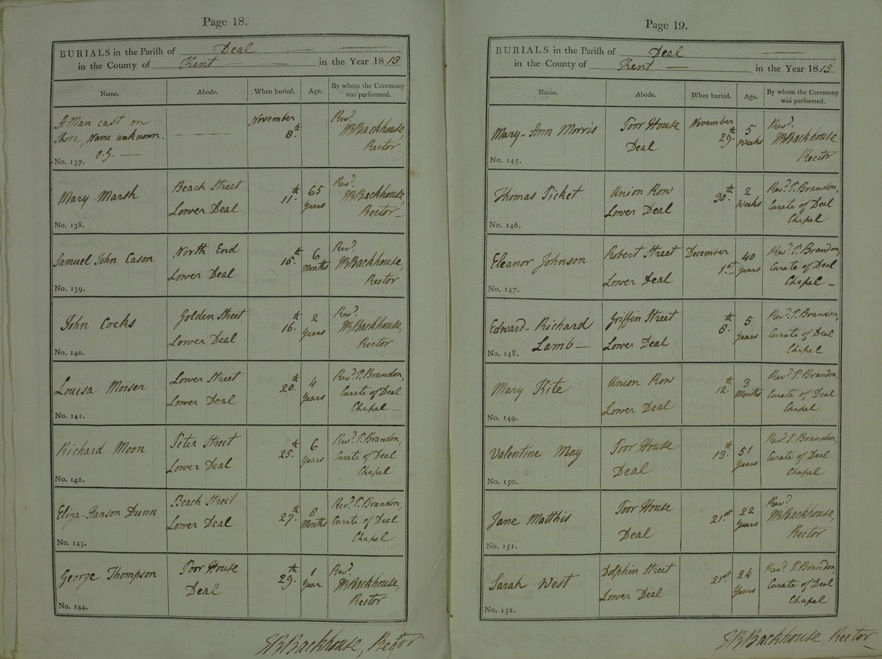 Page 18.
BURIALS in the Parish of Deal
in the County of Kent in the Year 1813
Name. Abode. When buried. Age. By whom the Ceremony was performed.
A Man cast on
Shore, Name unknown.
November
8th
Revd.
Backhouse,
Rector
No. 137.
Mary Marsh
Beach Street
Lower Deal
11th
65
Years
Revd.
Backhouse,
Rector
No. 138.
Samuel John Cason
North End
Lower Deal
15th
6
Months
Revd.
Backhouse,
Rector
No. 139.
John Cocks
Golden Street
Lower Deal
16th
2
Years
Revd.
Backhouse,
Rector
No. 140.
Louisa
Lower Street
Lower Deal
20th
4
Years
Revd. P. Brandon,
Curate of Deal
Chapel
No. 141.
Richard Moon
Peter Street
Lower Deal
25th
6
Years
Revd. P. Brandon,
Curate of Deal
Chapel
No. 142.
Eliza-Hanson Dunn
Beach Street
Lower Deal
27th
8
Months
Revd. P. Brandon,
Curate of Deal
Chapel
No. 143.
George Thompson
Poor House
Deal
29th
1
Year
Revd.
Backhouse,
Rector
No. 144.
Backhouse, Rector
Page 19.
BURIALS in the Parish of Deal
in the County of Kent in the Year 1813
Name. Abode. When buried. Age. By whom the Ceremony was performed.
Mary-Ann Morris
Poor House
Deal
November
29th
5
Weeks
Revd.
Backhouse,
Rector
No. 145.
Thomas Ticket
Union Row
Lower Deal
30th
2
Weeks
Revd. P. Brandon,
Curate of Deal
Chapel
No. 146.
Eleanor Johnson
Robert Street
Lower Deal
December
1st
40
Years
Revd. P. Brandon,
Curate of Deal
Chapel
No. 147.
Edward-Richard
Lamb
Griffin Street
Lower Deal
8th
5
Years
Revd. P. Brandon,
Curate of Deal
Chapel
No. 148.
Mary Kite
Union Row
Lower Deal
12th
3
Months
Revd. P. Brandon,
Curate of Deal
Chapel
No. 149.
Valentine May
Poor House
Deal
13th
51
Years
Revd. P. Brandon,
Curate of Deal
Chapel
No. 150.
Jane Matthis
Poor House
Deal
21st
22
Years
Revd.
Backhouse,
Rector
No. 151.
Sarah West
Dolphin Street
Lower Deal
21st
24
Years
Revd. P. Brandon
Curate of Deal
Chapel
No. 152.
Backhouse, Rector